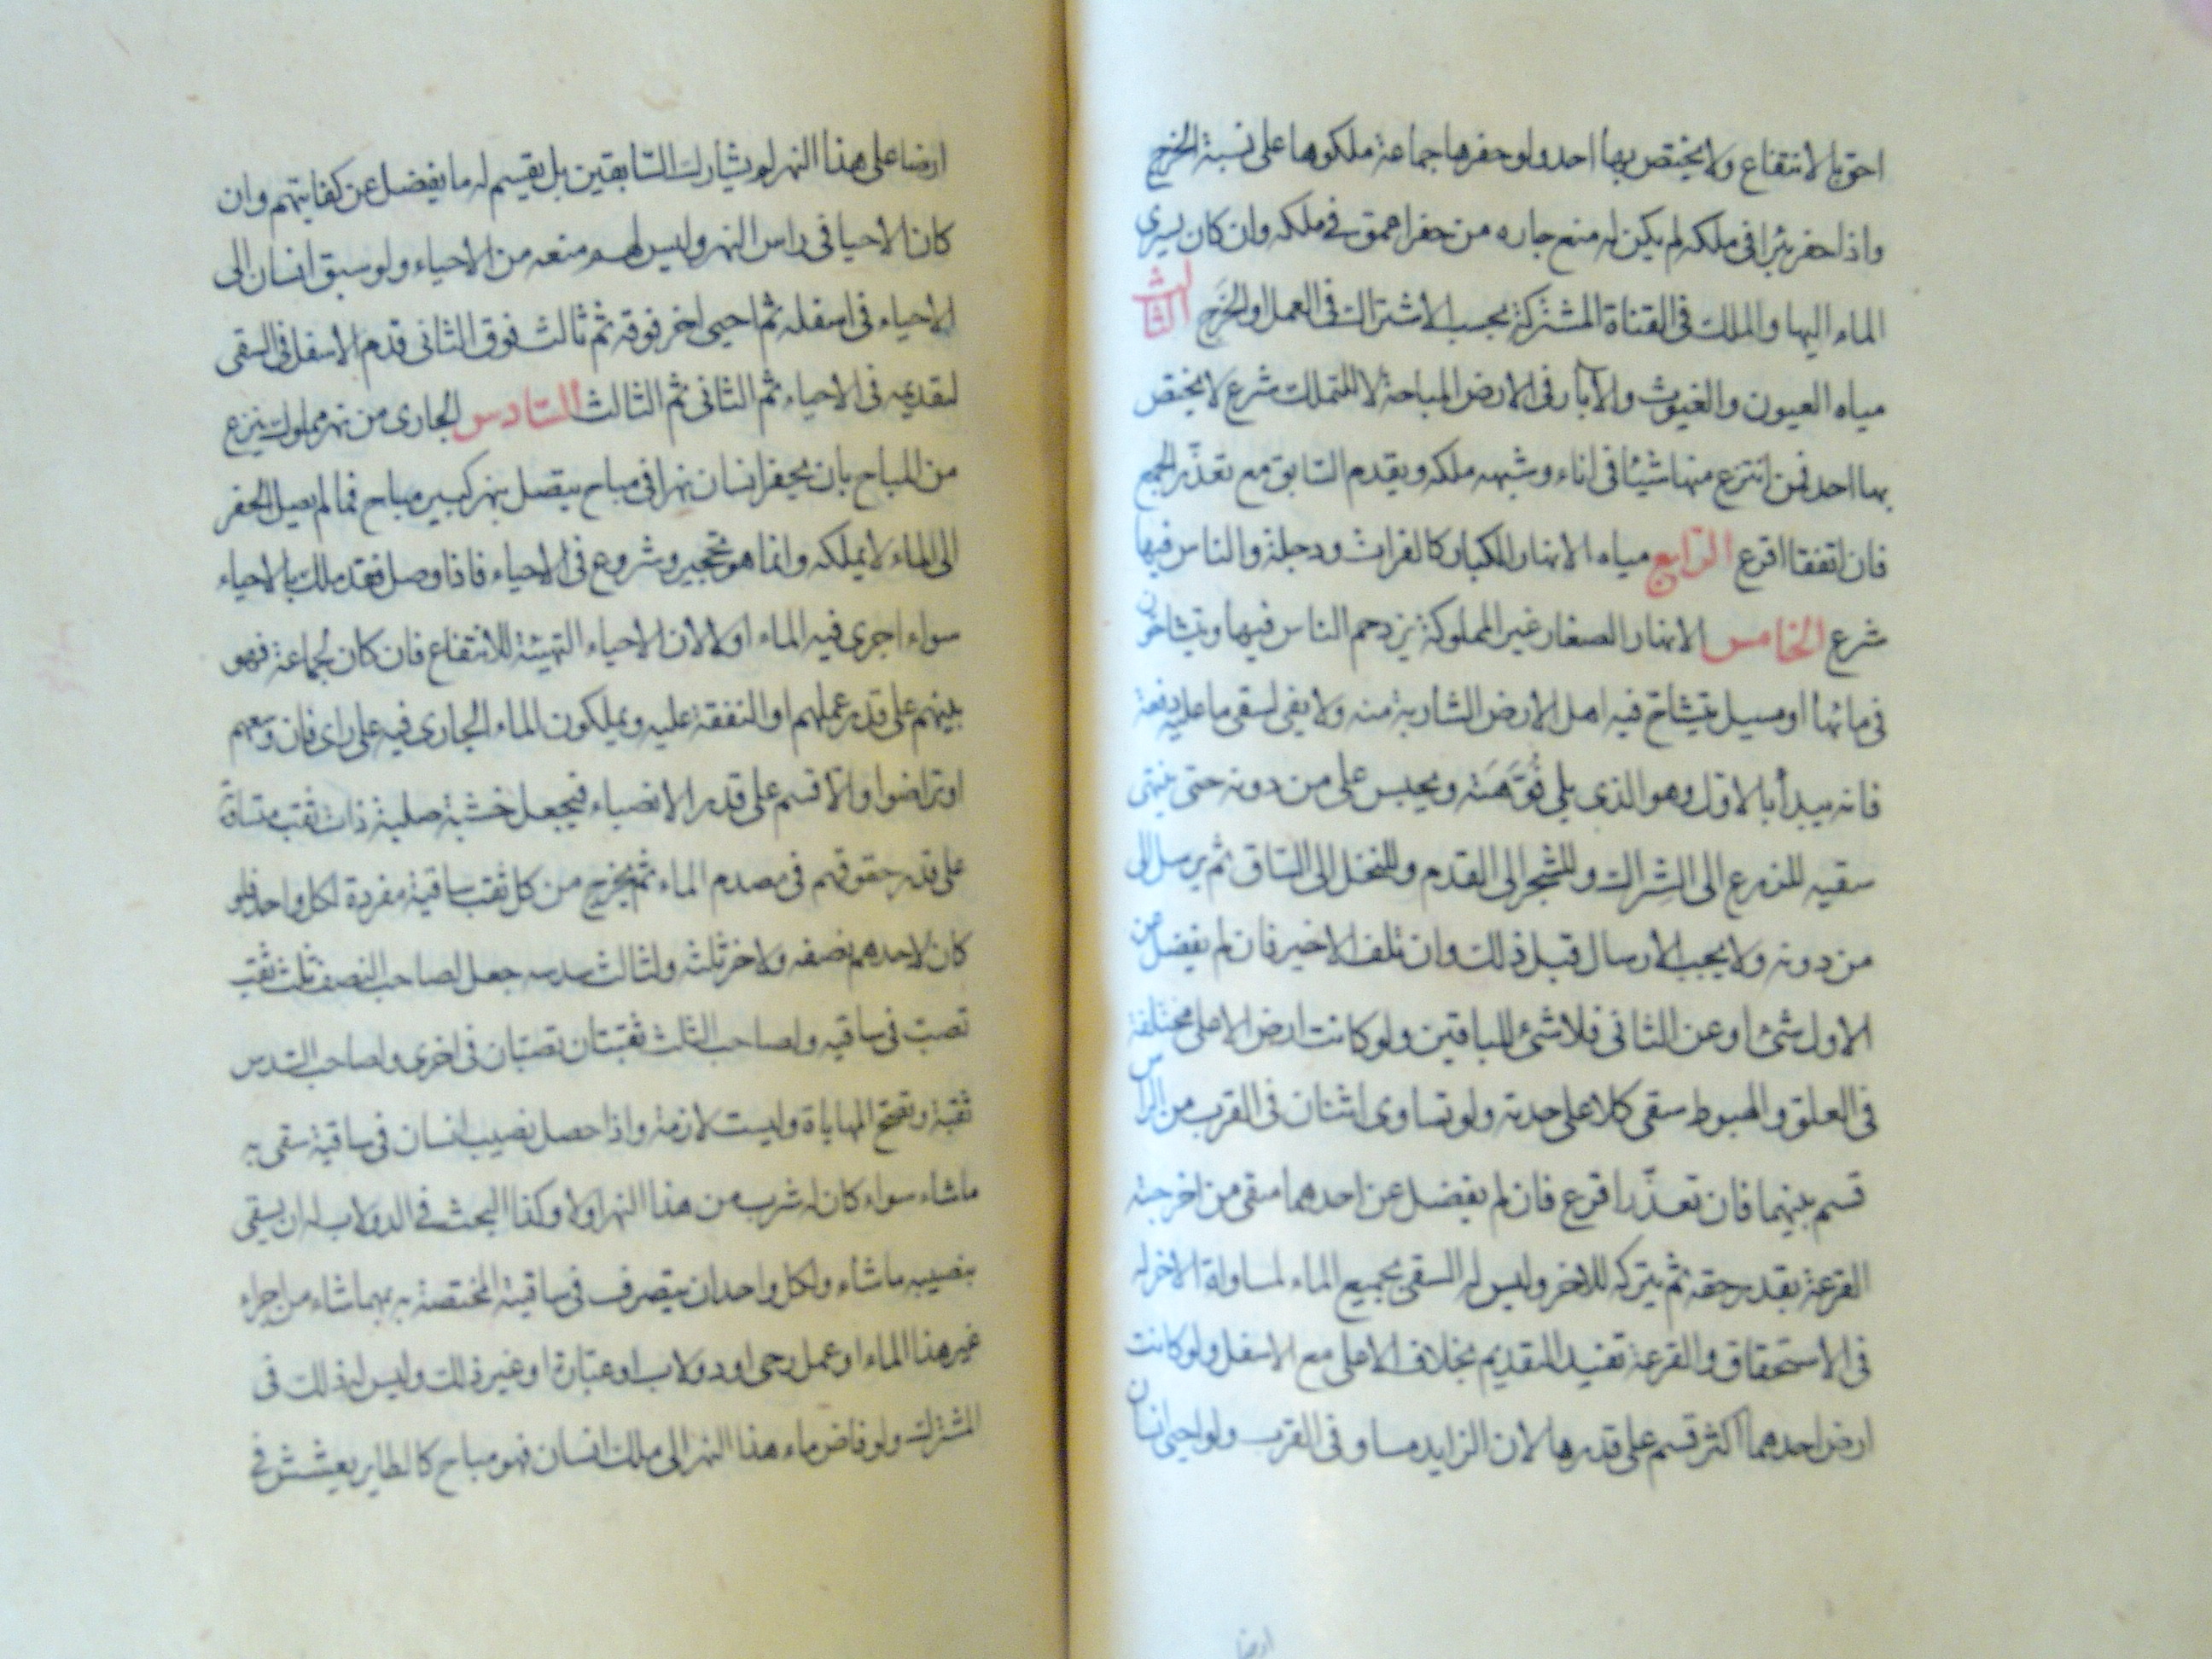 احق بالانتفاع ولا يختص بها احد ولو حفرها جماعة ملكوها على نسبة الخرج
واذا حفر بئرا فى ملكه لم يكن له منع جاره من حفر اعمق فى ملكه وان كان يسرى
الماء اليها والملك فى القناة المشتركة بحسب الاشتراك فى العمل او الخرج الثالث
مياه العيون والغيوث والآبار فى الارض المباحة لا للتملك شرع لا يختص
بها احد فمن انتزع منها شيئا فى اناء وشبهه ملكه ويقدم السابق مع تعذر الجمع
فان اتفقا اقرع الرابع مياه الانهار الكبار كالفرات ودجلة والناس فيها
شرع الخامس الانهار الصغار غير المملوكة يزدحم الناس فيها ويتشاحون
فى مائها او مسيل يتشاح فيه اهل الارض الشاربة منه ولا يفى لسقى ما عليه دفعة
فانه يبدأ بالاول وهو الذى يلى فُوَّهَته ويحبس على من دونه حتى ينتهى
سقيه للزرع الى الشِراك وللشجر الى القدم وللنخل الى الساق ثم يرسل الى
من دونه ولا يجب الارسال قبل ذلك وان تلف الاخير فان لم يفضل عن
الاول شئ او عن الثانى فلا شئ للباقين ولو كانت ارض الاعلى مختلفة
فى العلو والهبوط سقى كلا على حدته ولو تساوى اثنان فى القرب من الراس
قسم بينهما فان تعذّر اقرع فان لم يفضل عن احدهما سقى من اخرجته
القرعة بقدر حقه ثم يتركه للاخر وليس له السقى بجميع الماء لمساواة الاخر له
فى الاستحقاق والقرعة تفيد التقديم بخلاف الاعلى مع الاسفل ولو كانت
ارض احدهما اكثر قسم على قدرها لان الزايد مساو فى القرب ولو احيى انسان
ارضا
ارضا على هذا النهر لم يشارك السابقين بل يقسم له ما يفضل عن كفايتهم وان
كان الاحيا فى راس النهر وليس لهم منعه من الاحياء ولو سبق انسان الى
الاحياء فى اسفله ثم احيى اخر فوقه ثم ثالث فوق الثانى قدم الاسفل فى السقى
لتقديمه فى الاحياء ثم الثانى ثم الثالث السادس الجارى من نهر مملوك ينزع
من المباح بان يحفر انسان نهرا فى مباح يتصل بنهر كبير مباح فما لم يصل الحفر
الى الماء لا يملكه وانما هو تحجير وشروع فى الاحياء فاذا وصل فقد ملك بالاحياء
سواء اجرى فيه الماء اولا لان الاحياء التهيئة للانتفاع فان كان لجماعة فهو
بينهم على قدر عملهم او النفقة عليه ويملكون الماء الجارى فيه على راى فان وسعهم
او تراضوا والا قسم على قدر الانصباء فيجعل خشبة صلبة ذات ثقب متساوية
على قدر حقوقهم فى مصدم الماء ثم يخرج من كل ثقب ساقية مفردة لكل واحد فلو
كان لاحدهم نصفه ولاخر ثلثه ولثالث سدسه جعل لصاحب النصف ثلث ثقب
تصب فى ساقيه ولصاحب الثلث ثقبتان تصبان فى اخرى ولصاحب السدس
ثقبة وتصح المهاياة وليست لازمة واذا حصل نصيب انسان فى ساقية سقى به
ما شاء سواء كان له شرب من هذا النهر اولا وكذا البحث فى الدولاب له ان يسقى
بنصيبه ما شاء ولكل واحد ان يتصرف فى ساقيته المختصة به بمهما شاء من اجراء
غير هذا الماء او عمل رحى او دولاب او عبّارة او غير ذلك وليس له ذلك فى
المشترك ولو فاض ماء هذا النهر الى ملك انسان فهو مباح كالطاير يعشش فى